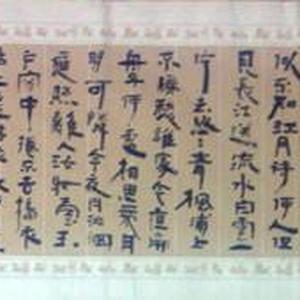 似不知江月待何人但
見長江送流水白雲一
片去悠悠青楓浦上
不勝愁誰家今夜扁
舟子何處相思明月
樓可憐月徘徊
應照離人妝鏡臺玉
戶簾中捲不去搗衣